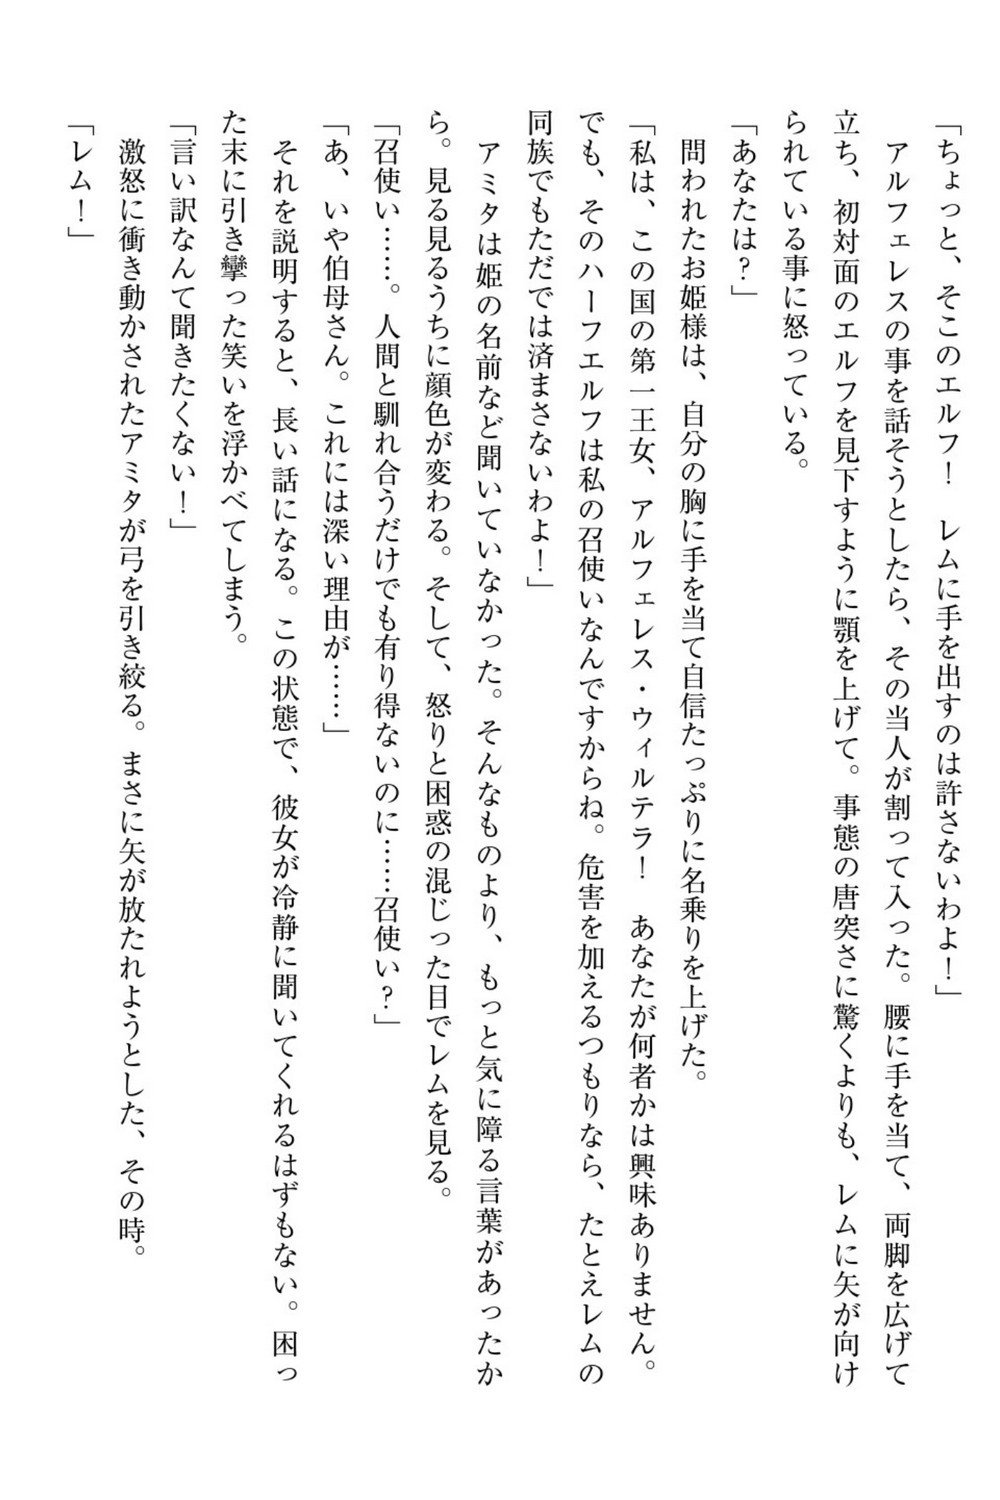 「ちょっと、そこのエルフ！　レムに手を出すのは許さないわよ！」
　アルフェレスの事を話そうとしたら、その当人が割って入った。腰に手を当て、両脚を広げて
立ち、初対面のエルフを見下すように顎を上げて。事態の唐突さに驚くよりも、レムに矢が向け
られている事に怒っている。
「あなたは？」
　問われたお姫様は、自分の胸に手を当て自信たっぷりに名乗りを上げた。
「私は、この国の第一王女、アルフェレス・ウィルテラ！　あなたが何者かは興味ありません。
でも、そのハーフエルフは私の召使いなんですからね。危害を加えるつもりなら、たとえレムの
同族でもただでは済まさないわよ！」
　アミタは姫の名前など聞いていなかった。そんなものより、もっと気に障る言葉があったか
ら。見る見るうちに顔色が変わる。そして、怒りと困惑の混じった目でレムを見る。
「召使い……。人間と馴れ合うだけでも有り得ないのに……召使い？」
「あ、いや伯母さん。これには深い理由が……」
　それを説明すると、長い話になる。この状態で、彼女が冷静に聞いてくれるはずもない。困っ
た末に引き攣った笑いを浮かべてしまう。
「言い訳なんて聞きたくない！」
　激怒に衝き動かされたアミタが弓を引き絞る。まさに矢が放たれようとした、その時。
「レム！」